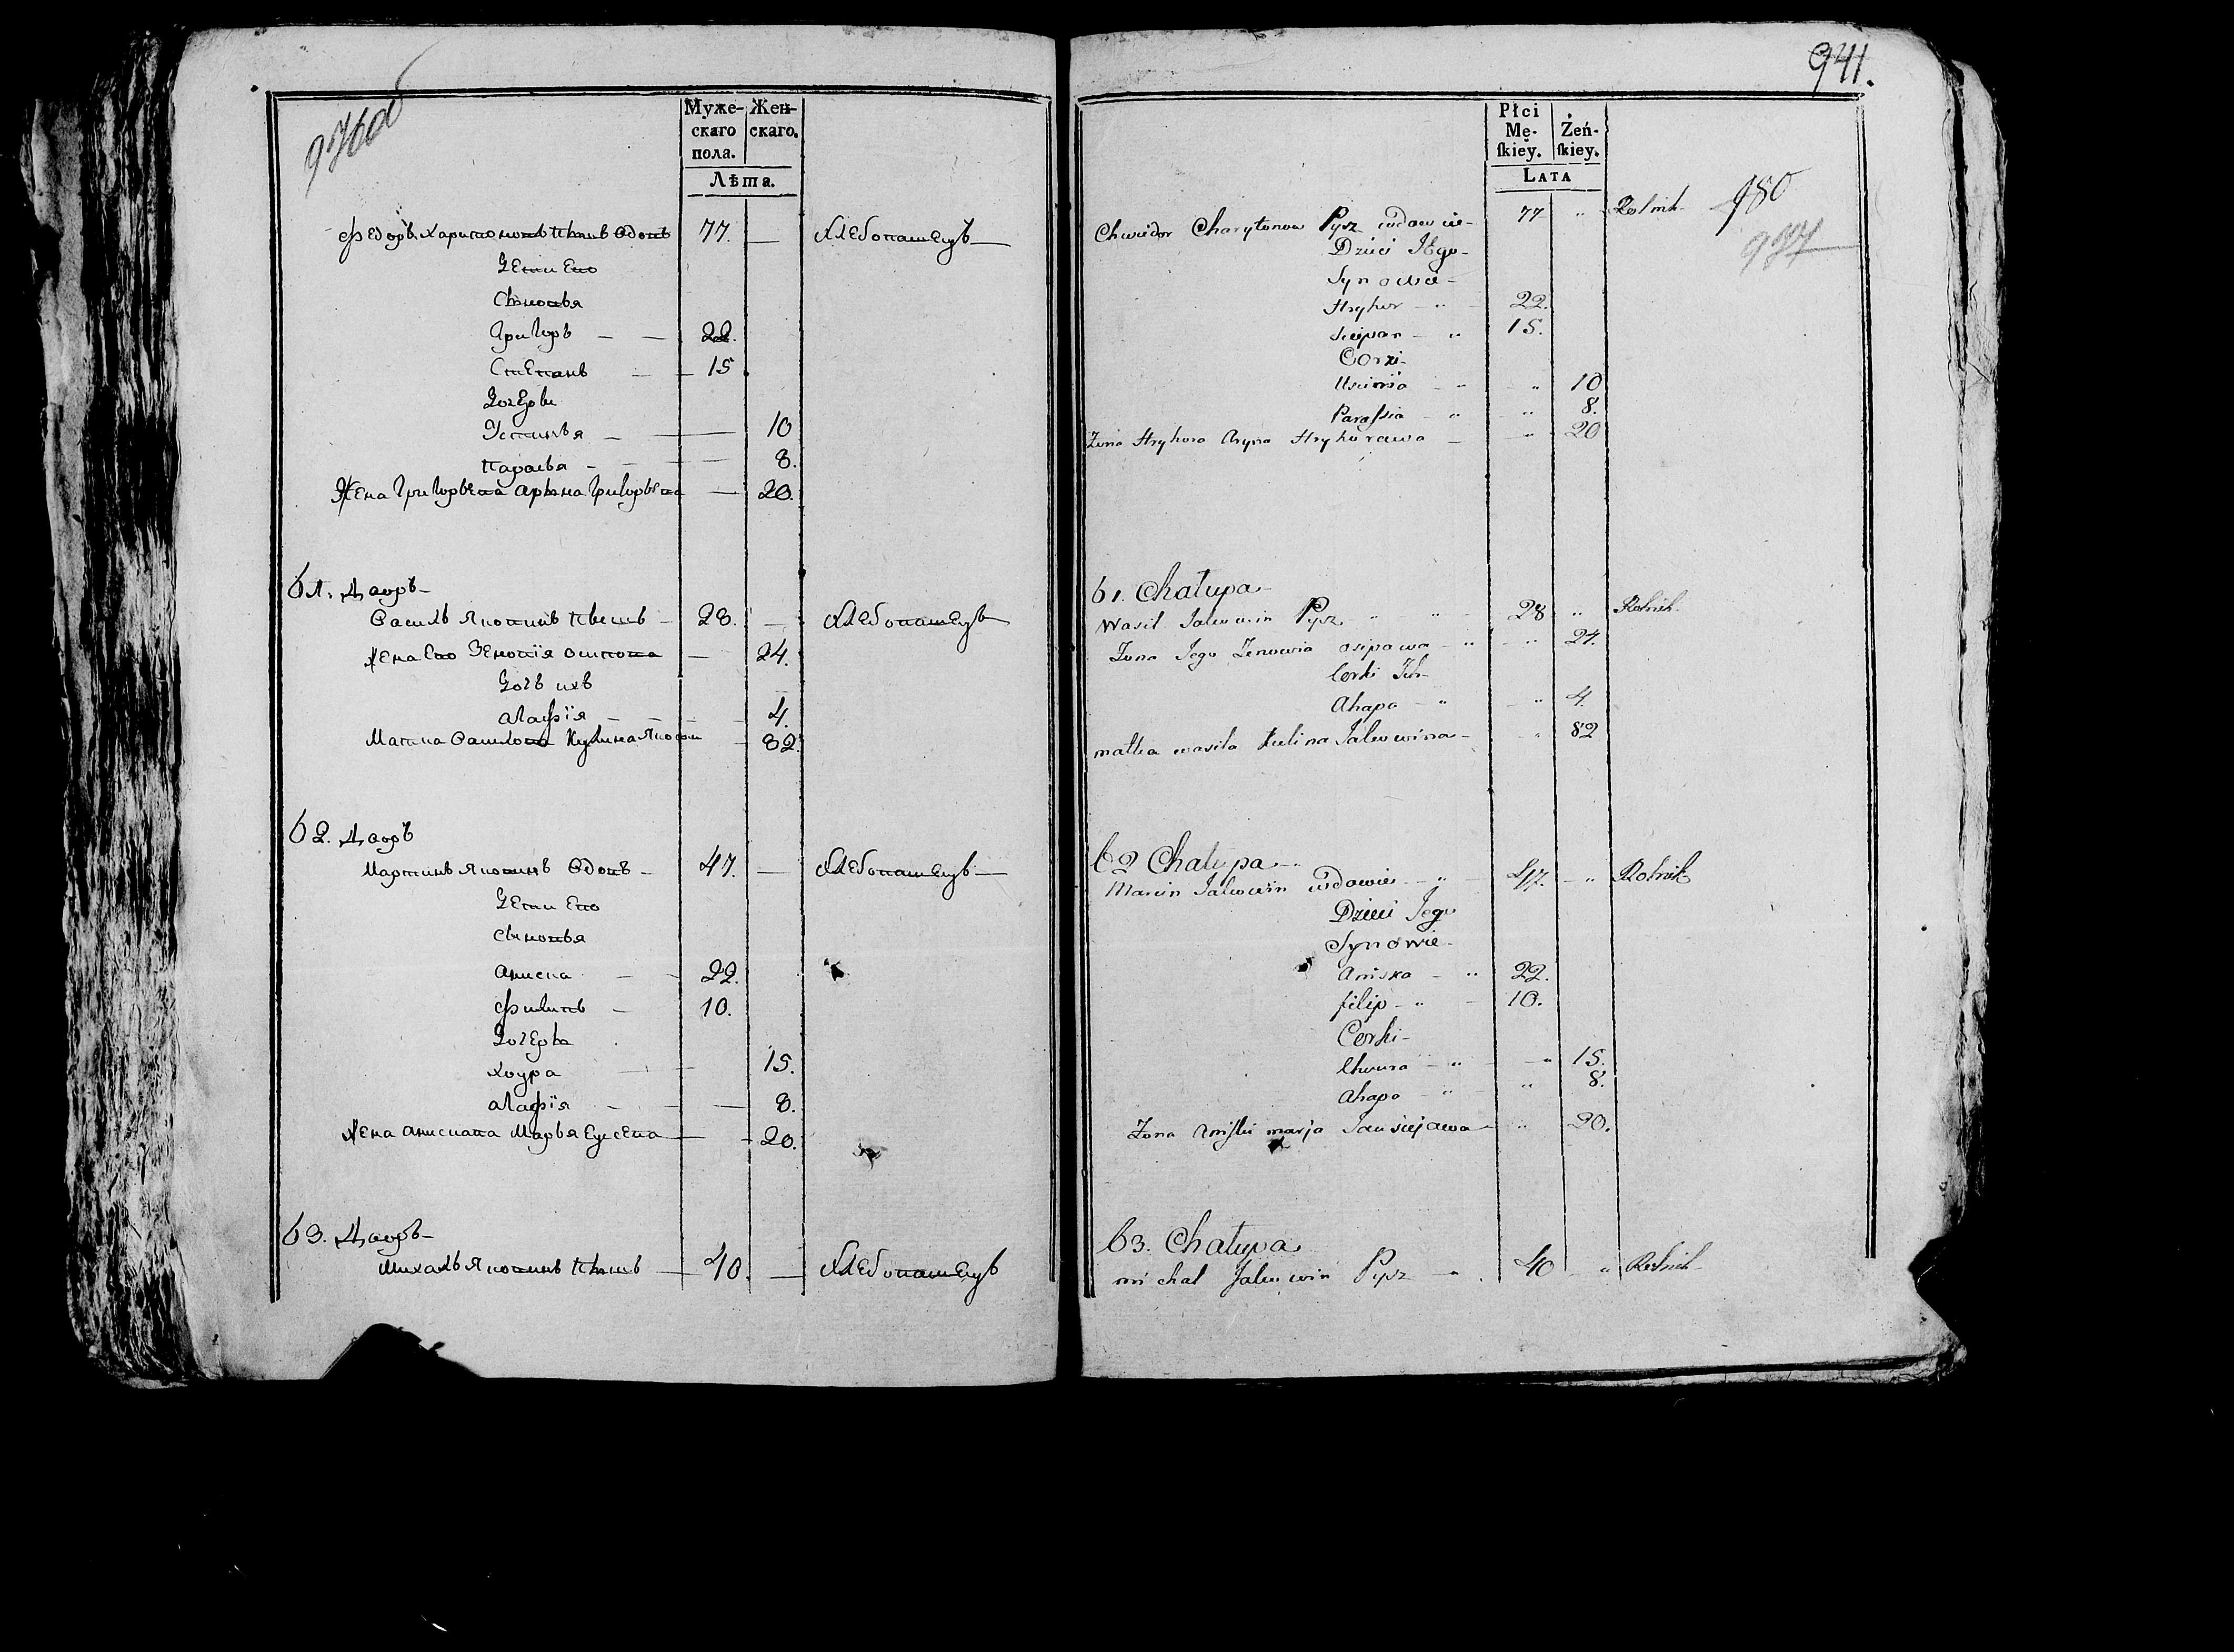 976об
Муже-
скаго
пола.
Жен-
скаго.
Лѣта.
Федоръ Харитоновъ Пышъ Вдовъ 77. — Хлебопашецъ —
Дети Ево
Сыновья
Григоръ — — 22.
Степанъ — 15
Дочери
Устинья — — 10
Парасья — — 8.
Жена Григорьева Арына Григорьева — 20.
61. Дворъ —
Василь Яковинъ Пышъ — 28. — Хлебопашецъ
Жена Ево Зеновія Осипова — 24.
Дочь ихъ
Агафія — — — 4.
Матка Василова Кулина 82.
62. Дворъ
Мартинъ Яковинъ Вдовъ — 47. — Хлебопашецъ —
Дети Ево
Сыновья
Аниска — — 22.
Филипъ — 10.
Дочеры
Хоура — — 15.
Агафія — — — 8.
Жена Анискава Марья — 20.
63. Дворъ —
Михаль Яковинъ Пышъ — 40. — Хлебопашецъ
941.
Płci
Mę-
skiey.
Żeń-
skiey.
LATA
980
977
Chwidor Charytonow Pysz wdowiec - 77 " Rolnik -
Dzieci Jego -
Synowie -
Hryhor - " - 22.
Sciepan - " 15.
Corki -
Uscinia - " - " 10
Parassia - " - " 8.
Zona Hryhora Aryna Hryhorawa - - " 20
61. Chałupa -
Wasil Jakowin Pysz " " - 28 " Rolnik -
Zona Jego Zenowia Osipowa - " - " 24.
Corki Ich -
Ahapa - " - " 4.
matka wasila Kulina Jakowina - - " 82
62 Chałupa - -
Marcin Jakowin wdowiec - " - 47. - " Rolnik
Dzieci Jego
Synowie -
Aniska - " 22.
filip - " - 10.
Corki -
Chwura - " - " 15.
Ahapa - " " 8.
Zona Aniski marja - " 20.
63. Chałupa
michał Jakowin Pysz - " 40 - " Rolnik -